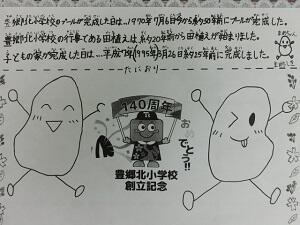 豊郷北小学校のプールが完成した日は…1970年7月6日今から約50年前にプールが完成した。
豊郷北小学校の行事である田植えは約20年前から田植えが始まりました。
子どもの家が完成した日は…平成7年(1995年)3月26日約25年前に完成しました。
たにおり
140周年
おめでとう!!
豊郷北小学校
創立記念